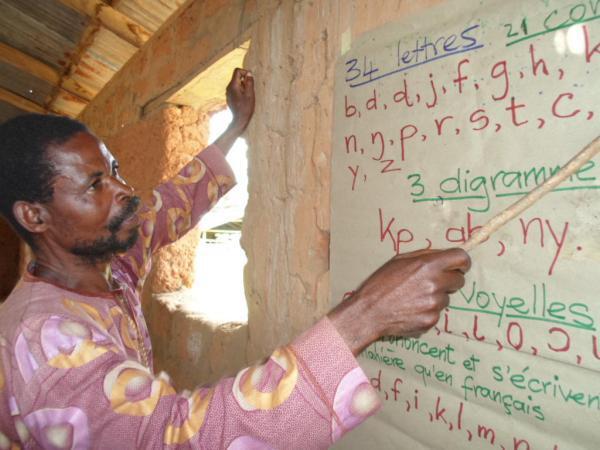 34 lettres 21 con
b, d, ɖ, j, f, g, h, k
n, ŋ, p, r, s, t, c,
y, z
3 digramme
kp, gb, ny.
voyelles
i, ɩ, o, ɔ, ʋ
prononcent et s'écrivent
manière qu'en français
d, f, i, k, l, m, n